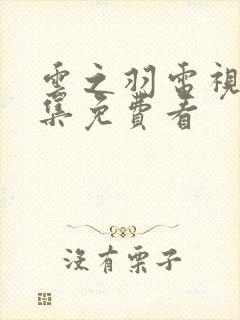 雲之羽電視
集免費看
沒有栗子